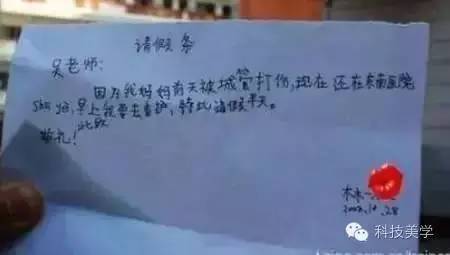 请假条
吴老师:
因为我妈妈前天被城管打伤,现在还在东南医院
shu ye,早上我要去看护,特此请假半天。
此致
敬礼!
木木一
28
科技美学